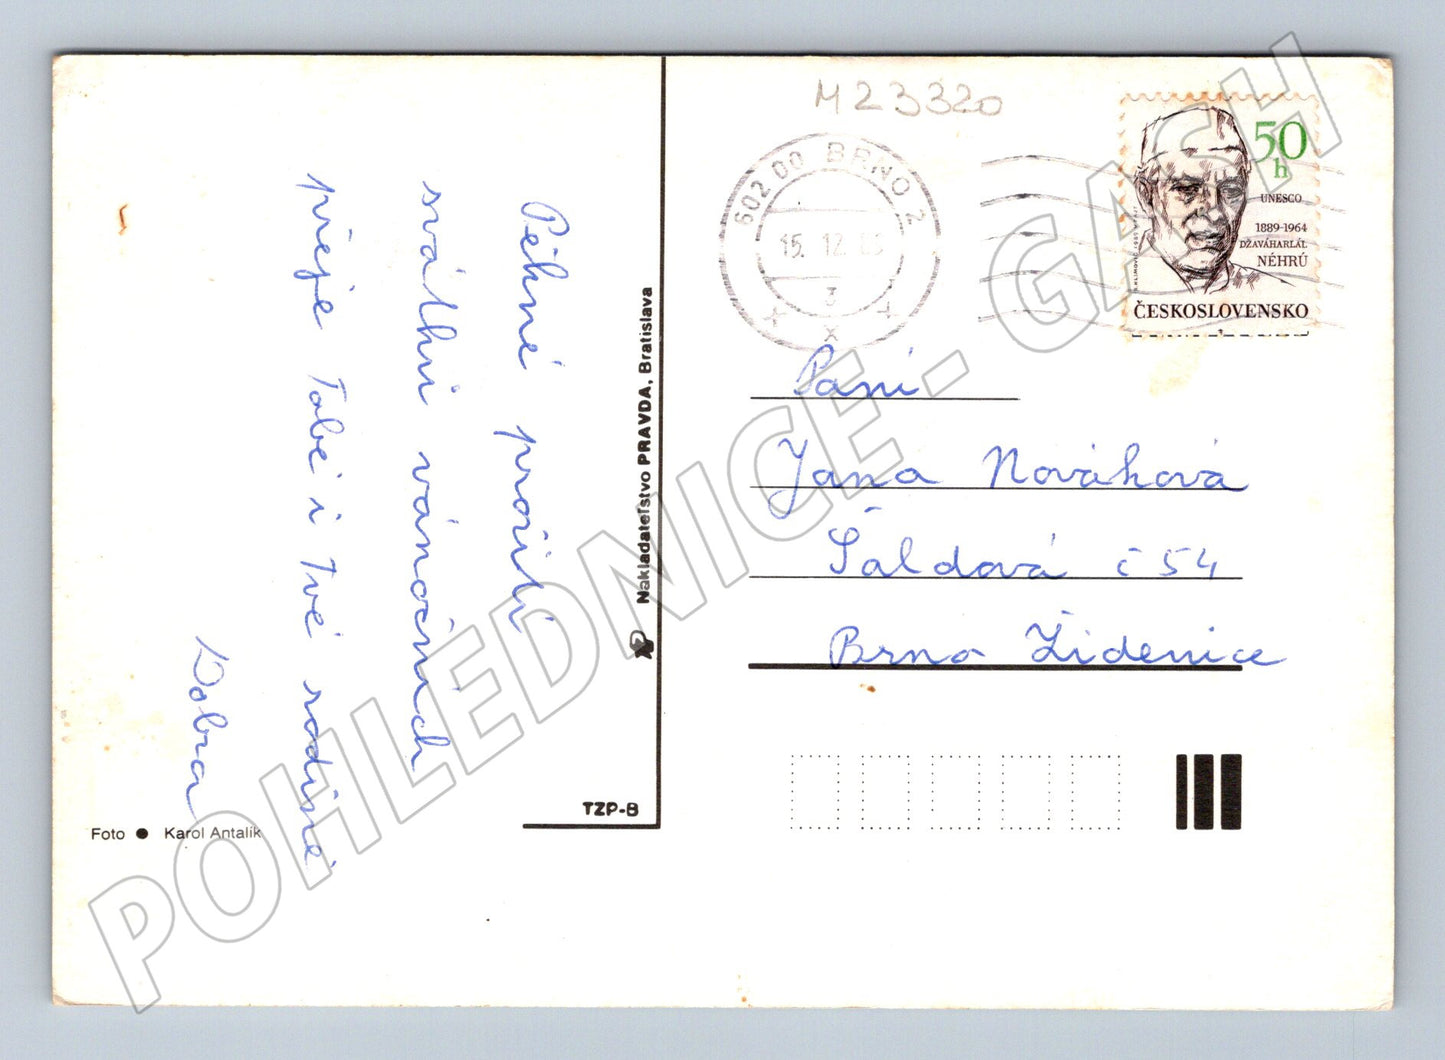 Pěkné prožití
svátků vánočních
přeje Tobě i Tvé rodině
Dobra
Foto ● Karol Antalík
Nakladateľstvo PRAVDA, Bratislava
TZP-B
M23320
602 00 BRNO 2
15. 12.
3
x
50
h
UNESCO
1889-1964
DŽAVÁHARLÁL
NÉHRÚ
ČESKOSLOVENSKO
Paní
Jana Nováková
Šaldová č 54
Brno Židenice
POHLEDNICE - GASH